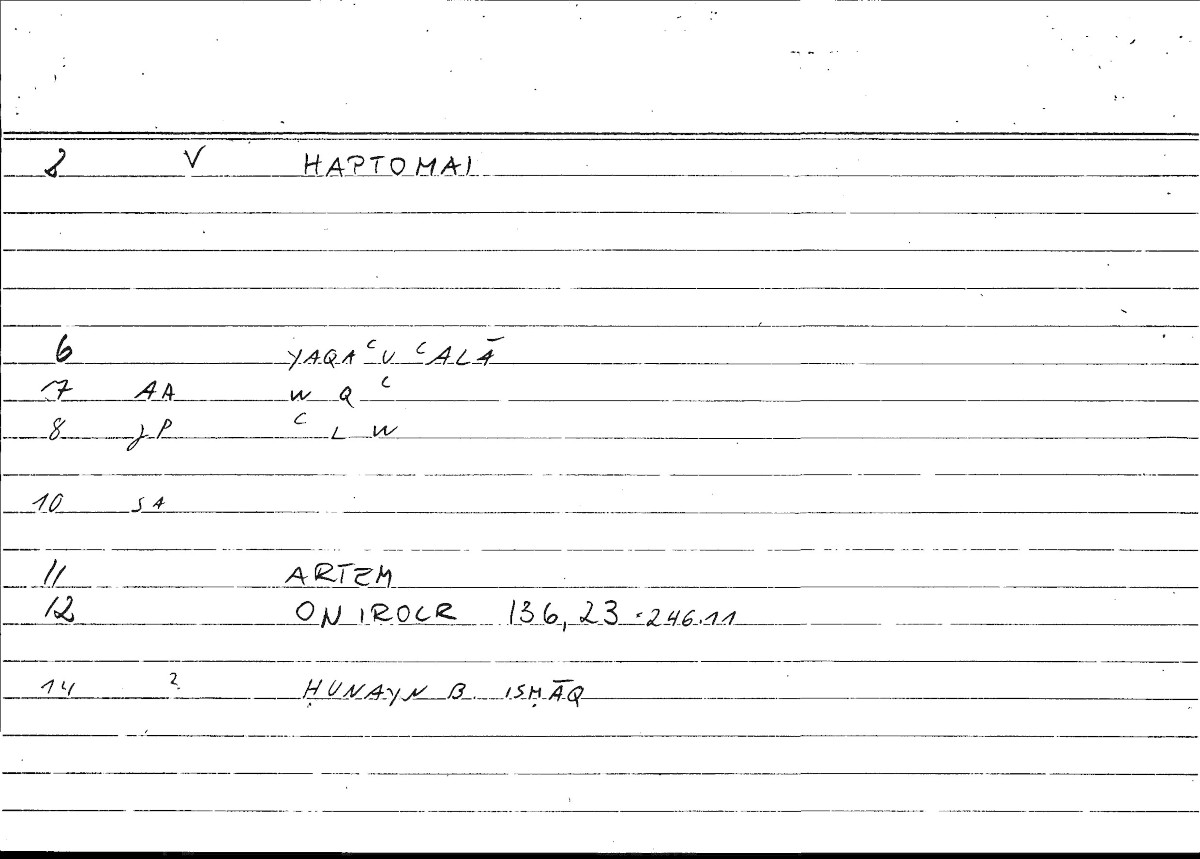 2 V HAPTOMAI
6 YAQAʿU ʿALĀ
7 AA W Q ʿ
8 JP ʿ L W
10 SA
11 ARTEM
12 ONIROCR 136,23 = 246.11
14 ? ḤUNAYN B. ISḤĀQ